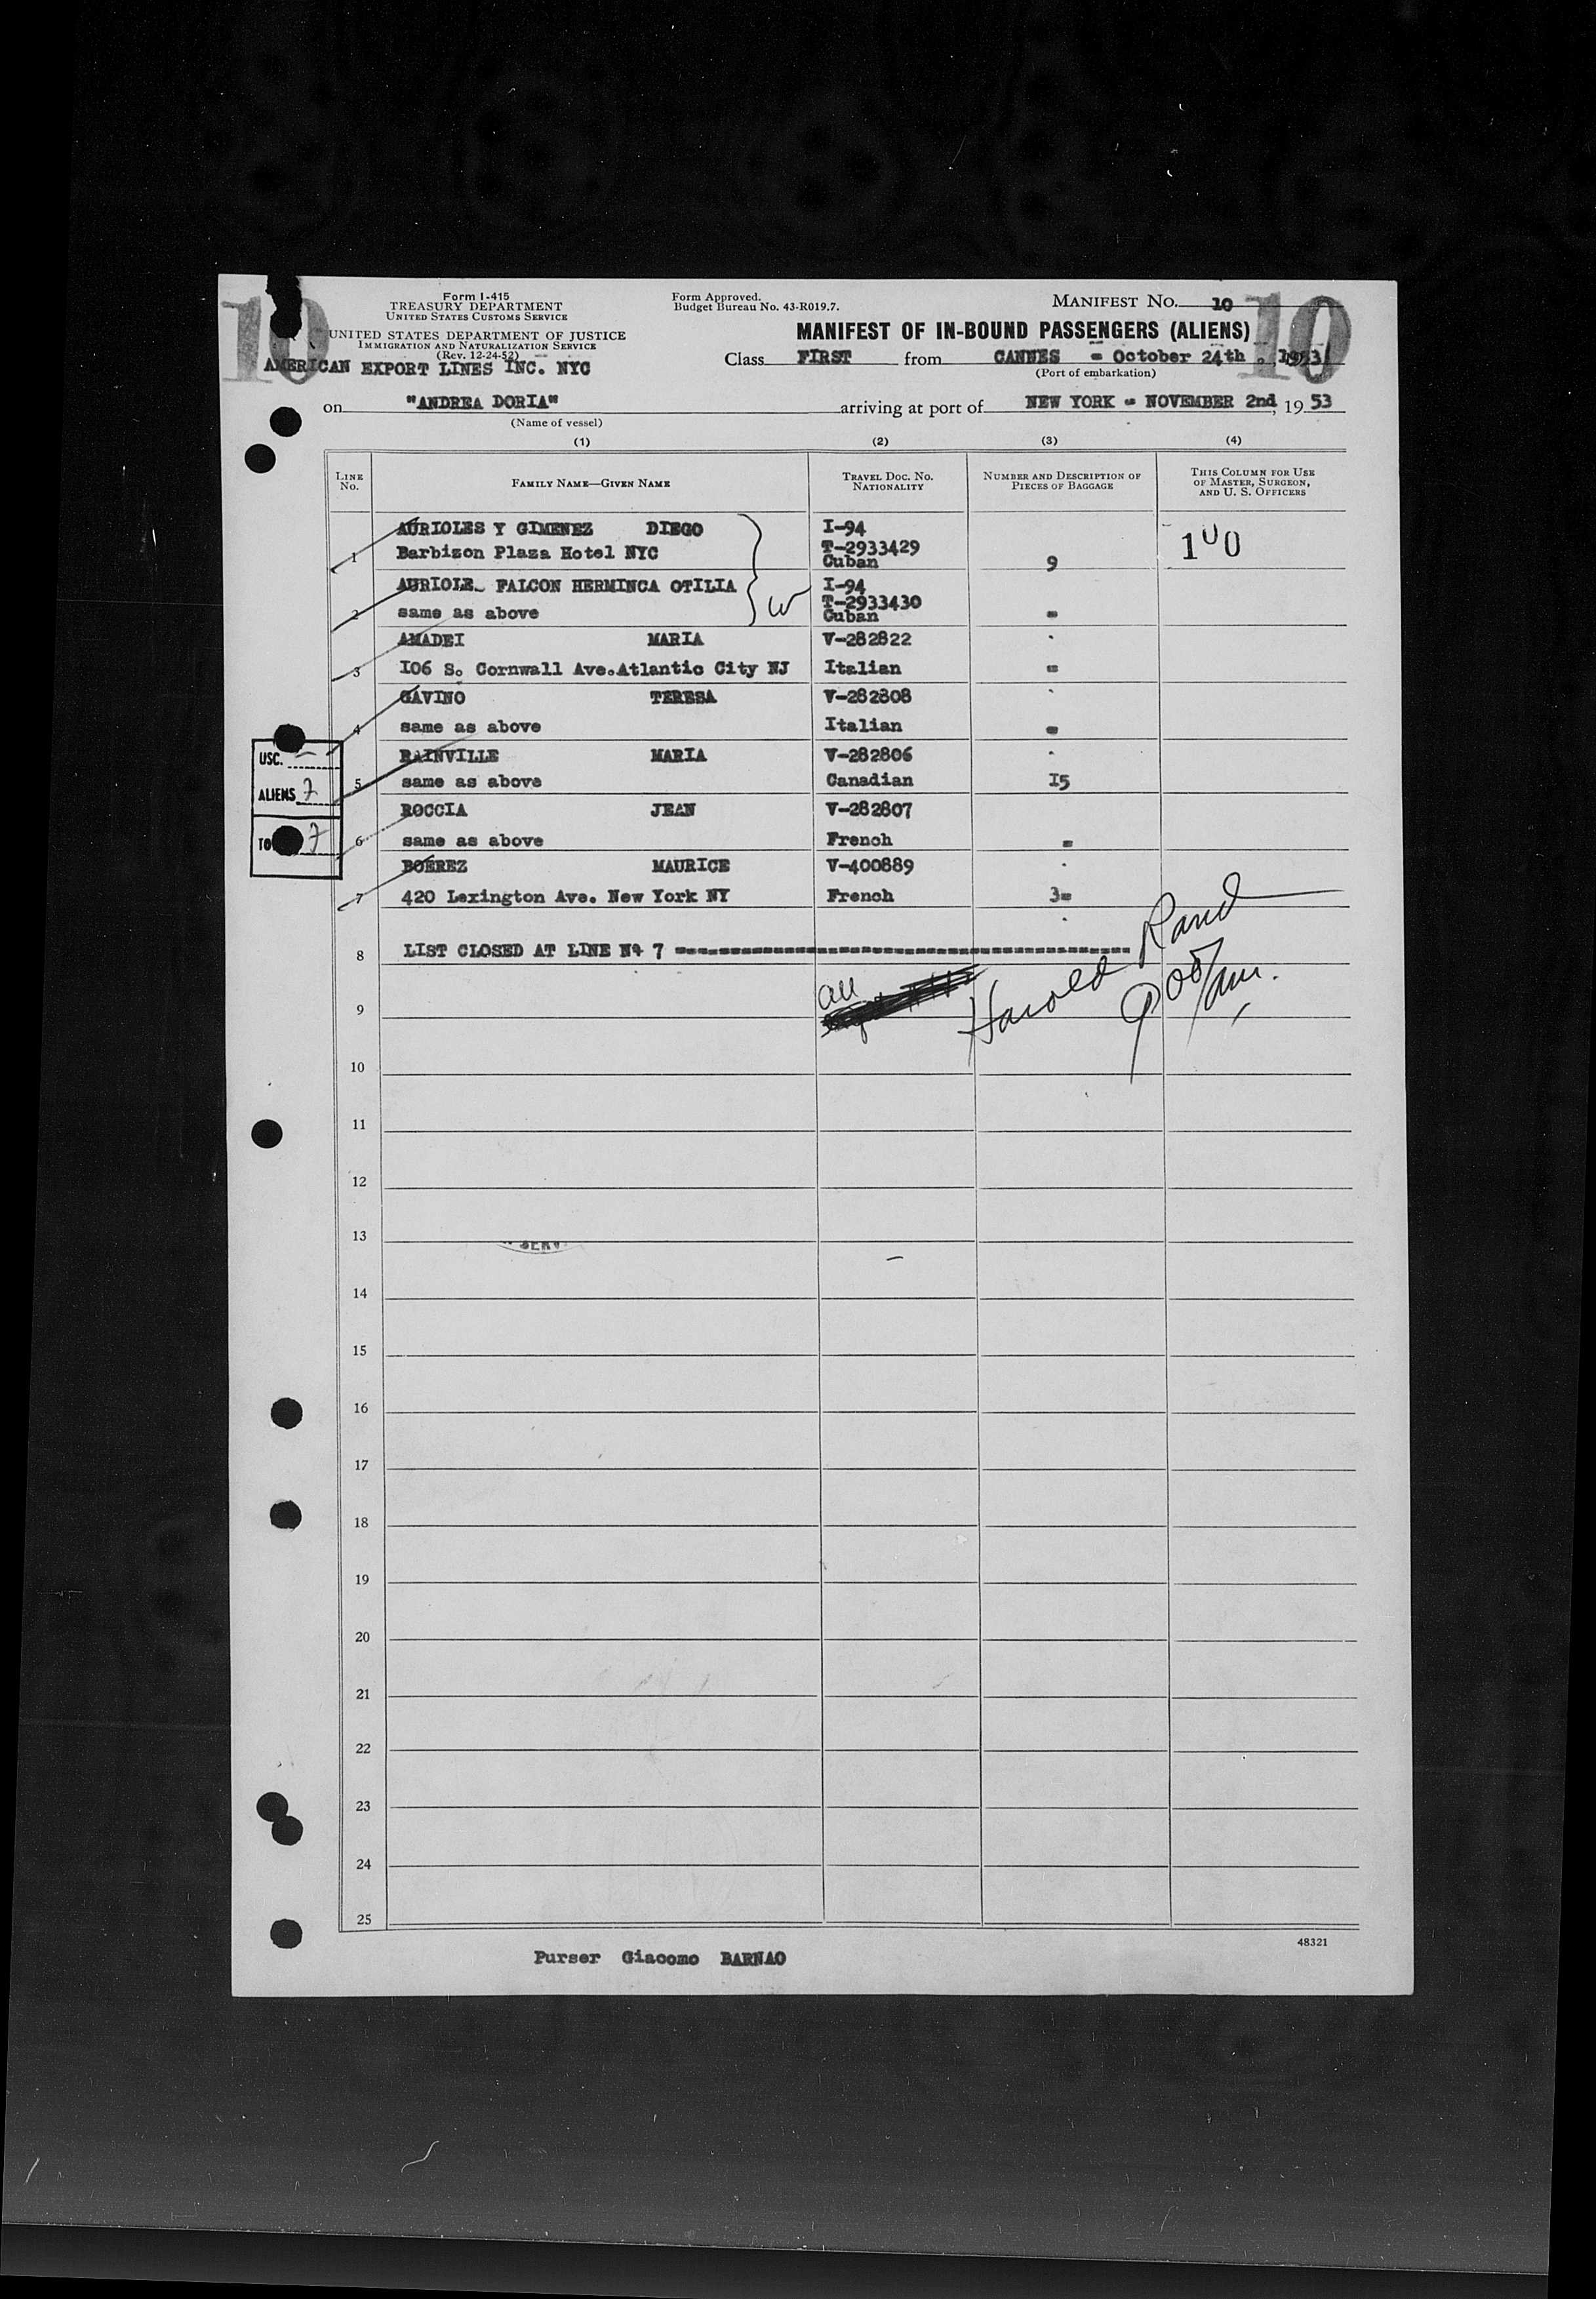 10
Form I-415
TREASURY DEPARTMENT
UNITED STATES CUSTOMS SERVICE
UNITED STATES DEPARTMENT OF JUSTICE
IMMIGRATION AND NATURALIZATION SERVICE
(Rev. 12-24-52)
AMERICAN EXPORT LINES INC. NYC
Form Approved.
Budget Bureau No. 43-R019.7.
MANIFEST NO. 10
10
MANIFEST OF IN-BOUND PASSENGERS (ALIENS)
Class FIRST from CANNES - October 24th, 1953
(Port of embarkation)
on "ANDREA DORIA" arriving at port of NEW YORK - NOVEMBER 2nd, 19 53
(Name of vessel)
(1) (2) (3) (4)
LINE NO. FAMILY NAME—GIVEN NAME TRAVEL DOC. NO. NATIONALITY NUMBER AND DESCRIPTION OF PIECES OF BAGGAGE THIS COLUMN FOR USE OF MASTER, SURGEON, AND U. S. OFFICERS
AURIOLES Y GIMENEZ DIEGO I-94
1 Barbizon Plaza Hotel NYC T-2933429 Cuban 9 100
AURIOLE FALCON HERMINCA OTILIA I-94
2 same as above T-2933430 Cuban =
AMADEI MARIA V-282822
3 I06 S. Cornwall Ave.Atlantic City NJ Italian =
GAVINO TERESA V-282808
4 same as above Italian =
RAINVILLE MARIA V-282806
5 same as above Canadian I5
ROCCIA JEAN V-282807
6 same as above French =
BOEREZ MAURICE V-400889
7 420 Lexington Ave. New York NY French 3=
USC. —
ALIENS 7
TO 7
8 LIST CLOSED AT LINE Nº 7
all
Harold Rand
9 05/am.
9
10
11
12
13
SERV
14
15
16
17
18
19
20
21
22
23
24
25
48321
Purser Giacomo BARNAO